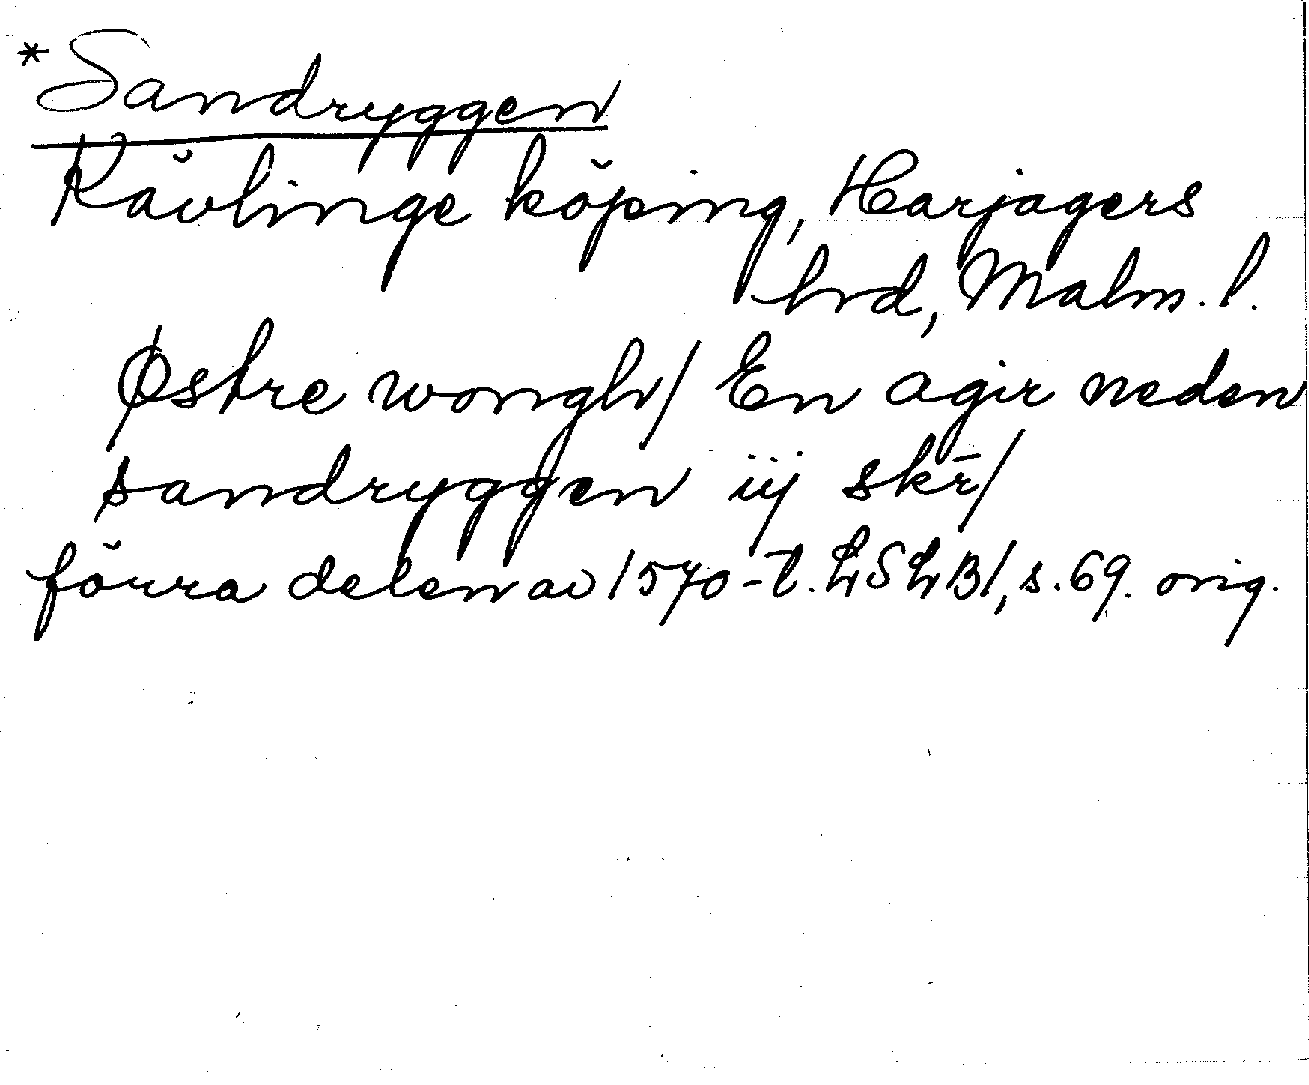 *Sandryggen
Kävlinge köping, Harjagers
hrd, Malm. l.
Østre wongh/ En agir neden
sandryggen iij skr̄/
förra delen av 1570-t. LSLB1, s. 69. orig.